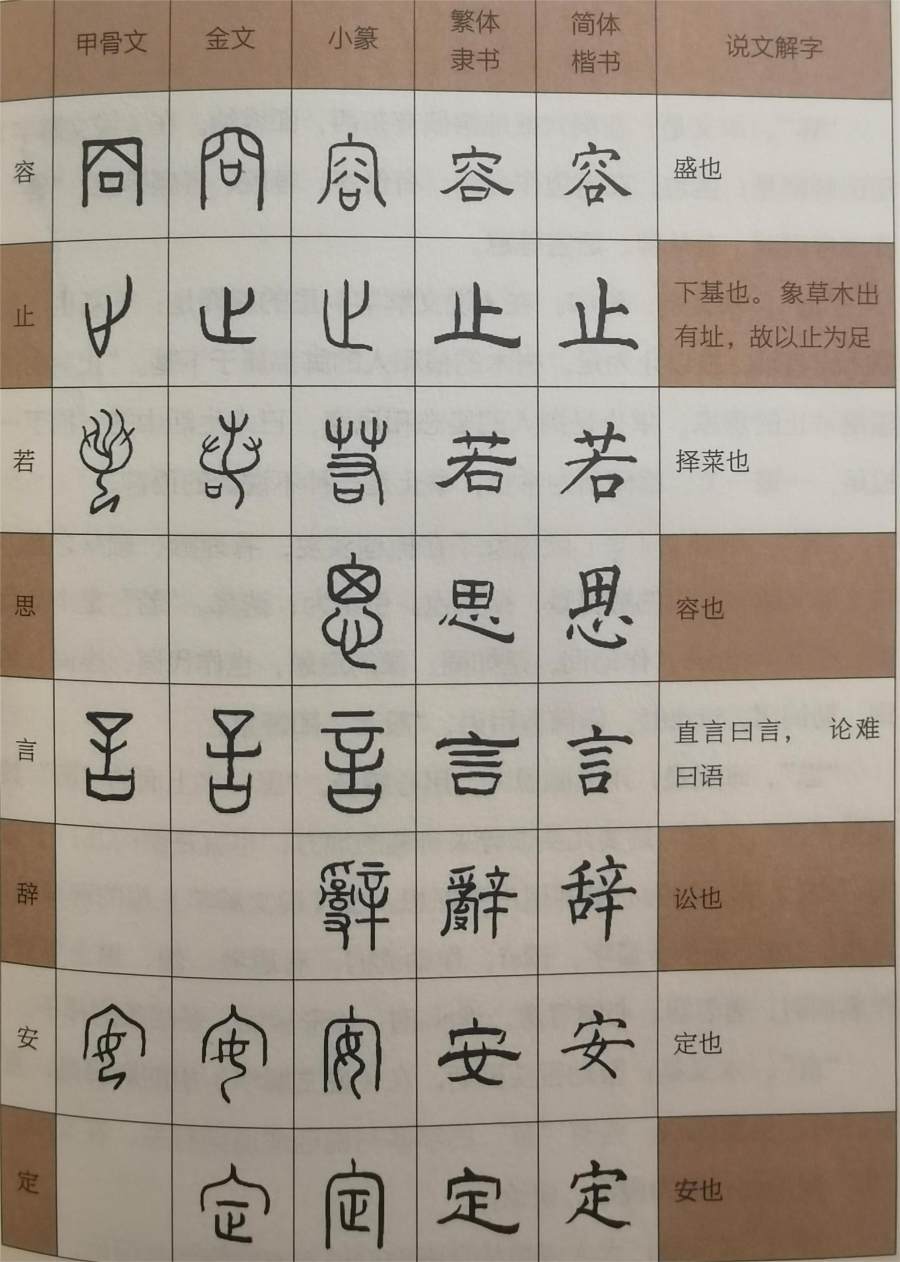 甲骨文 金文 小篆 繁体隶书 简体楷书 说文解字
容 容 容 容 容 容 盛也
止 止 止 止 止 止 下基也。象草木出有址，故以止为足
若 若 若 若 若 若 择菜也
思 思 思 思 容也
言 言 言 言 言 言 直言曰言， 论难曰语
辞 辭 辭 辞 讼也
安 安 安 安 安 安 定也
定 定 定 定 定 安也